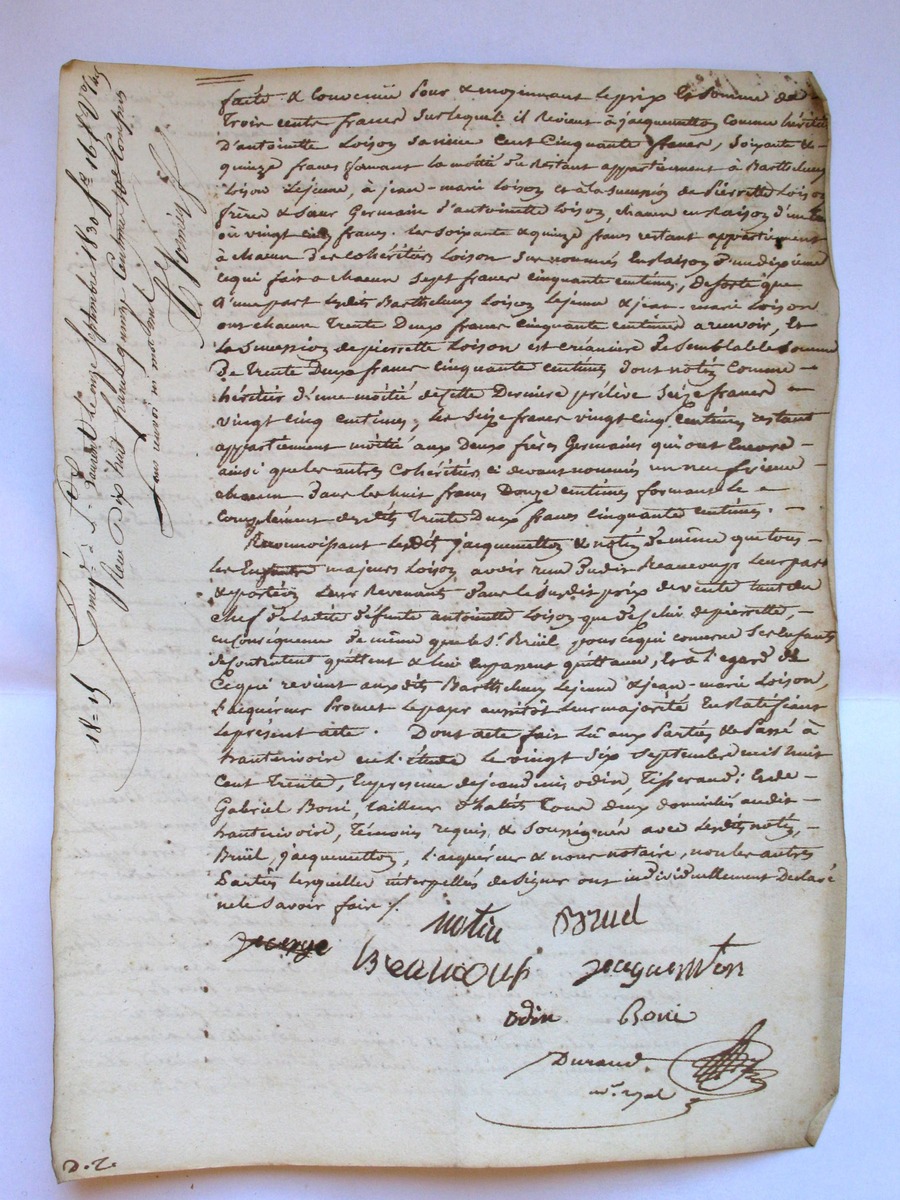 faite & convenüe pour & moyennant le prix & somme de
Trois cents francs Surlequel il Revient à jacquemetton comme héritier
D'antoinette Loison sa niece Cent Cinquante francs, Soixante &
quinze francs formant la moitié du Restant appartiennent à Barthelemy
Loison Lejeune, à jean-marie Loison et à la Succession de Pierrette Loison
frère & sœur Germain d'antoinette Loison, chacun en Raison d'un
ou vingt cinq francs. Les soixante & quinze francs restant appartiennent
à chacun des Cohéritiers Loison Sus nommés En Raison d'un dixieme
ce qui fait a chacun Sept francs cinquante centimes, desorte que
D'une part Lesdits Barthelemy Loison Lejeune & jean-marie Loison
ont chacun Trente Deux francs cinquante centimes a recevoir, Et
La Succession de pierrette Loison est créancière De Semblable Somme
De Trente Deux francs cinquante centimes dont notin Comme
héritier d'une moitié de cette Dernière prélève Seize francs
vingt cinq centimes, les Seize francs vingt cinq Centimes restant
appartiennent moitié aux Deux frères Germains qui ont Encore
ainsi que les autres Cohéritiers ci devant nommés un neuvième
chacun Dans les huit francs Douze centimes formant le
complément desdits Trente Deux francs cinquante centimes.
Reconnoissant Lesdits jacquemetton & notin De même que tous
les Enfants majeurs Loison avoir recu dudit Beaucoup Leur part
& portion Leur Revenant Dans le Susdit prix de vente tant du
chef de Ladite Défunte antoinette Loison que de celui de pierrette,
en conséquence De même que le Sr. Brüel pour ce qui concerne Ses Enfants
Se contentent quittent & lui en passent quittance, Et à l'egard de
Ce qui revient auxdits Barthelemy Lejeune & jean-marie Loison,
L'acquéreur Promet le payer aussitôt Leur majorité En Ratifiant
Le présent acte. Dont acte fait Lu aux Parties & Passé à
hauterivoire en L'étude Le vingt Six Septembre mil huit
Cent Trente, En presence de jean denis odin, Tisserand; Et de
Gabriel Boni, Tailleur d'habits Tous deux domiciliés audit
hauterivoire, Témoins requis & soussignés avec Lesdits notin,
Brüel, jacquemetton, L'acquéreur & nous notaire, non les autres
Parties Lesquelles interpellées de Signer ont individuellement Déclaré
ne le Savoir faire /.
notin Bruel
Beaucoup jacquemeton
odin Boni
Durand
nre. royal
St. Laurent le onze
1830 fo. 16
Reçu Dix huit francs quinze Centimes
18=15
D.Te